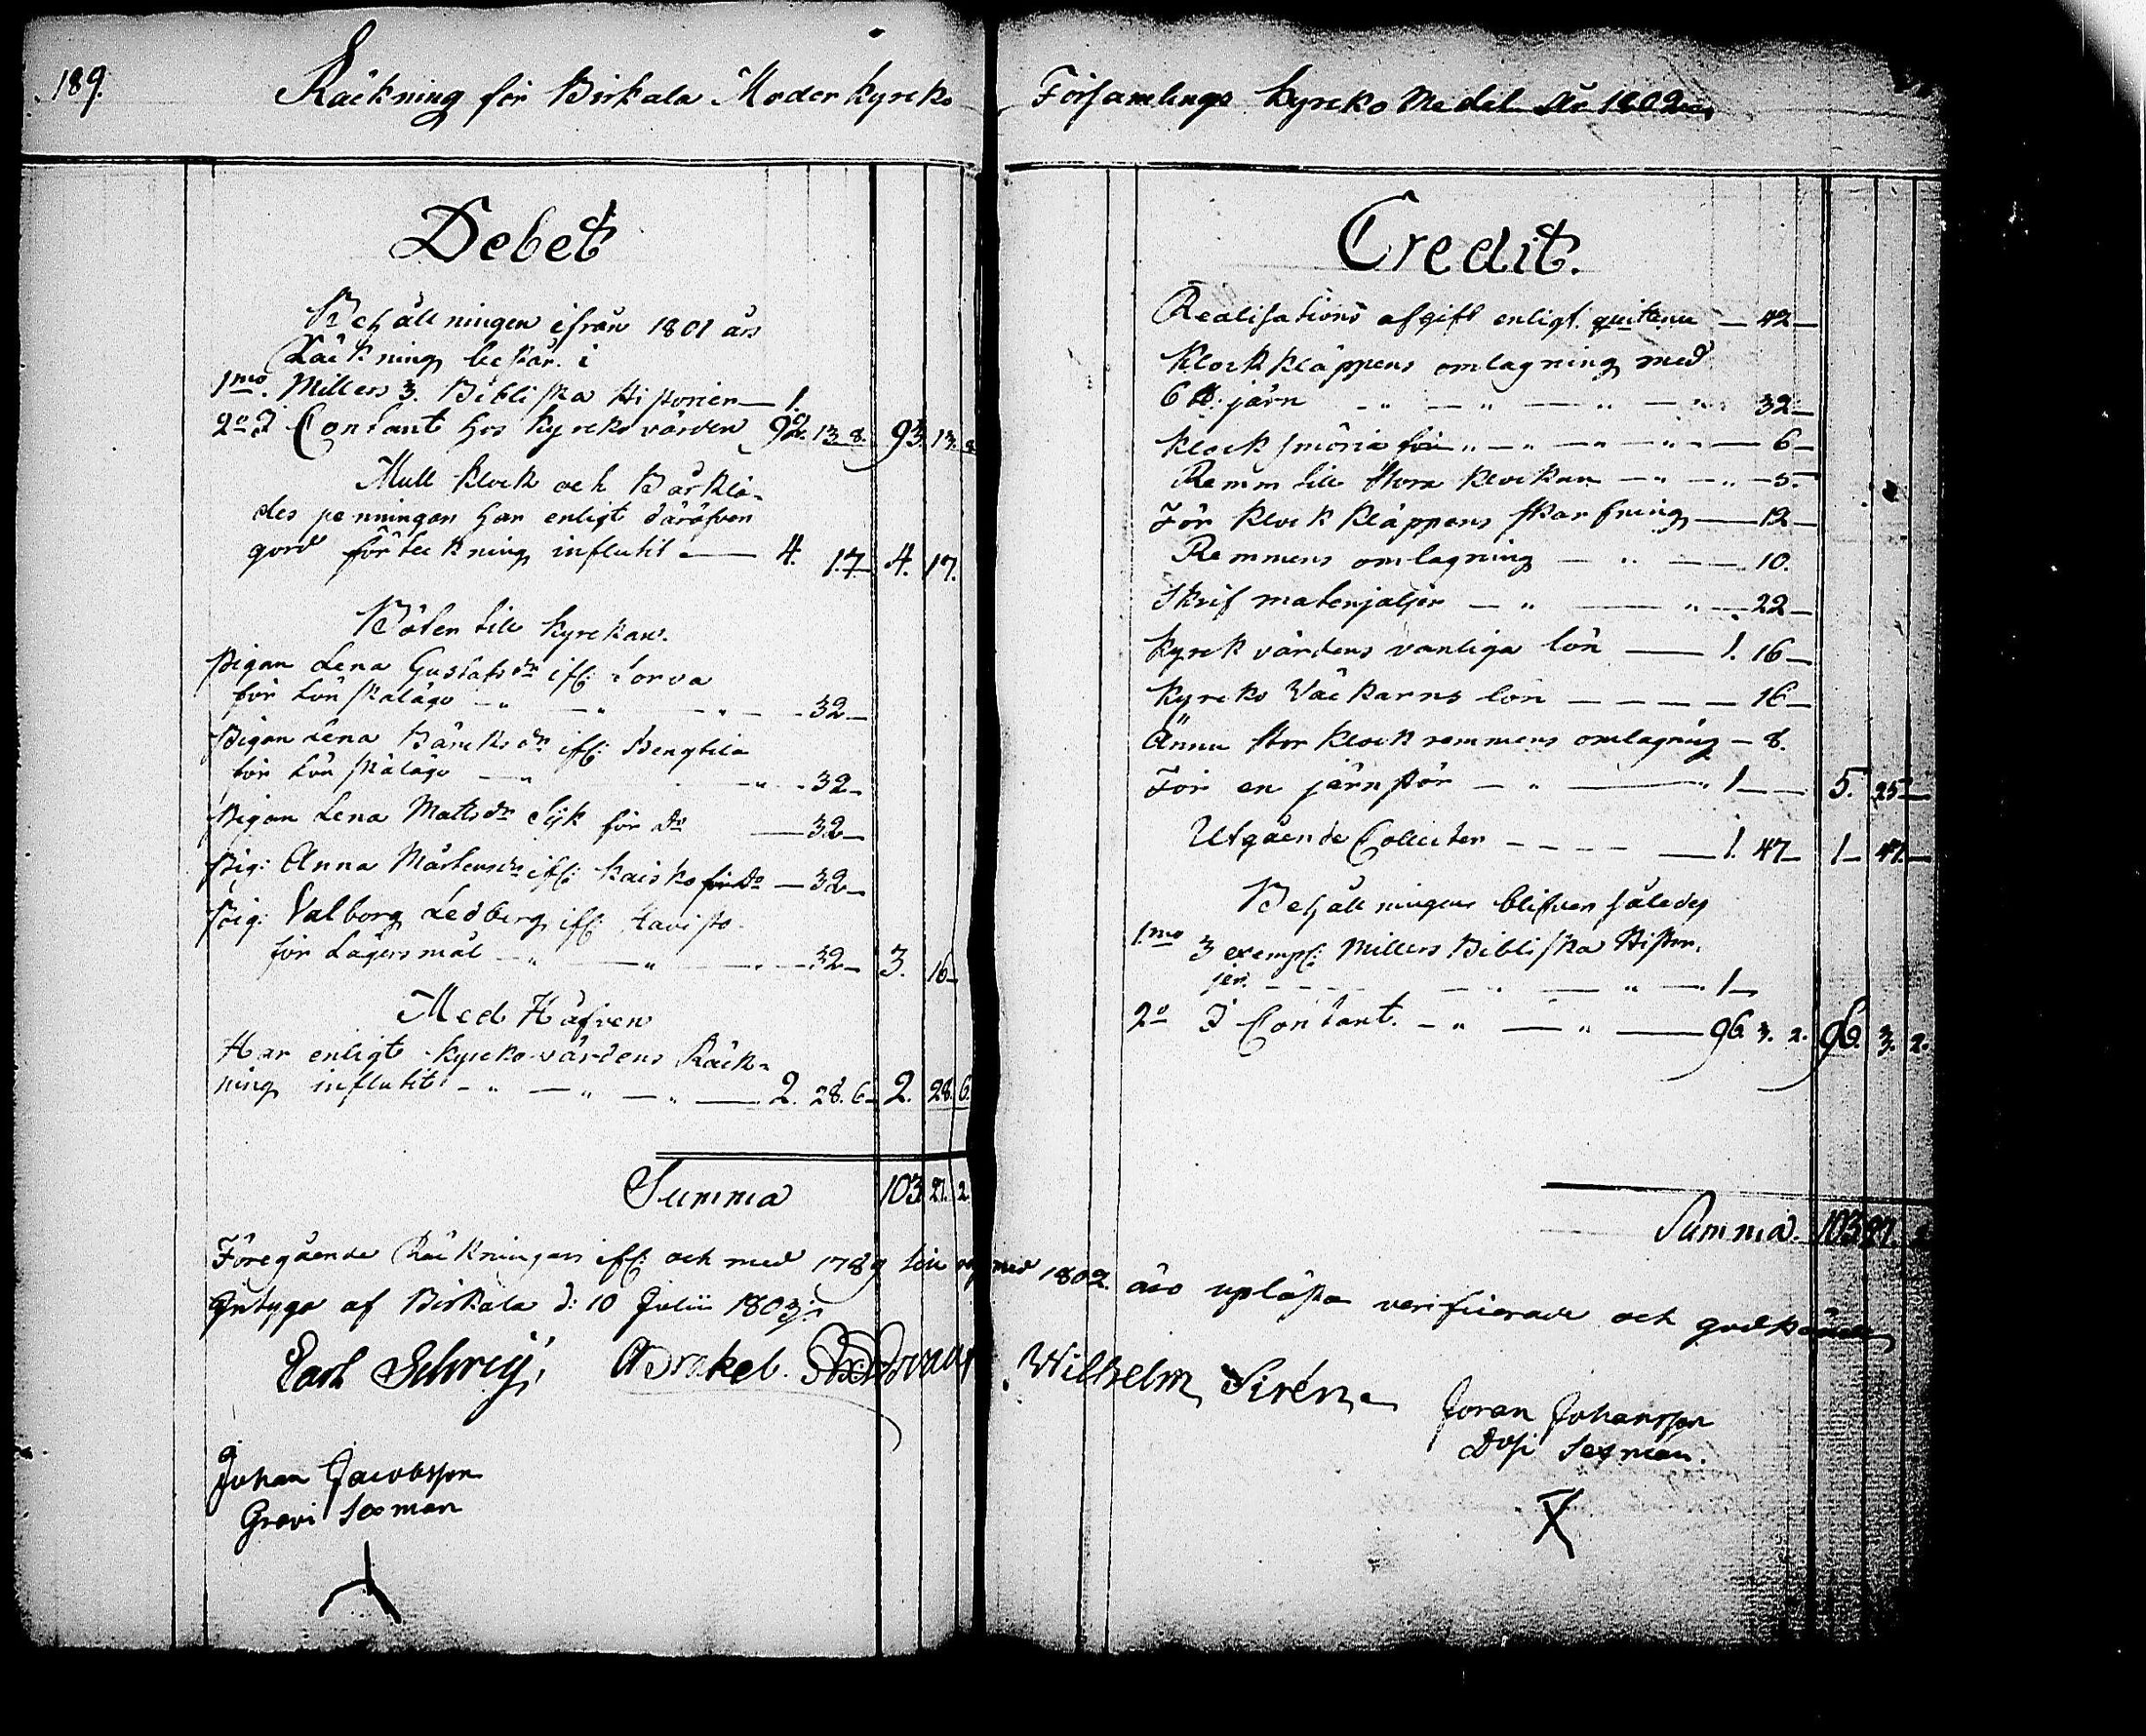 189.
Räckning för Birkala Moder kyrko
Debet
Behållningen ifrån 1801 års
Räckning består i
1mo. Millers 3. Bibliska Historier — 1.
2o I Contant hos kyrkovärden 92. 13. 8. 93. 13. 8
Mull klock och Bårklä-
des penningar har enligt däröfver
giord förteckning influtit — 4. 17. 4. 17.
Böter till kyrkan.
Pigan Lena Gustafsdr ifr: Sorva
för Lönskaläge — " — " — 32 —
Pigan Lena Bärchsdr ifr: Bengtila
för Lönskaläge — " — " — 32 —
Pigan Lena Mattsdr Sijk för do — 32 —
Pig: Anna Mårtensdr ifr: Kaisko för do — 32 —
Pig: Valborg Ledberg ifr: Havisto
för Lägersmål — " — " — 32 — 3. 16 —
Med Håfven
Har enligt kyrkovärdens Räck-
ning influtit — " — " — " — 2. 28. 6 — 2. 28. 6.
Summa 103. 27. 2
Föregående Räkningar ifr: och med 1789 till och med 1802. äro uplästa verificerade och godkände
Intyga af Birkala d: 10 Julii 1803
Johan Jacobsson
Grovi Sexman
Församlings kyrko Medel År 1802
Credit.
Realisations afgift enligt quitence — 42 —
Klockkläppens omlagning med
6 ℔: järn — " — " — " — 32 —
Klocksmörja för " — " — " — 6 —
Remm till stora klockan — " — " — 5.
För klockkläppens skarfning — 12 —
Remmens omlagning — " — 10.
Skrif materjaljer — " — " — 22 —
Kyrkvärdens vanliga lön — 1. 16 —
Kyrko Väckarns lön — — — — 16 —
Ännu stor klockremmens omlagning — 8.
För en järnstör — " — " 1 — — 5. 25 —
Utgående Collecter — — — — 1. 47 — 1 — 47 —
Behållningen blifver således
1mo 3 exempl: Millers Bibliska Histor-
jer. — — — " — " — 1 —
2o I Contant. — " — " — 96. 3. 2. 96. 3. 2.
Summa. 103 27. 2
Wilhelm Sirén
Joran Johansson
Sexman.